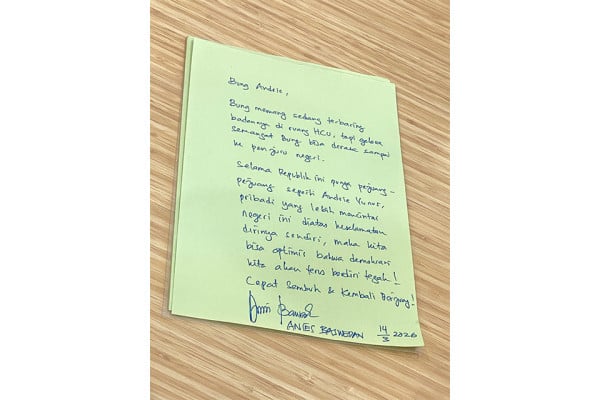 Bung Andrie,
Bung memang sedang terbaring
badannya di ruang HCU, tapi gelora
semangat Bung bisa derask sampai
ke penjuru negeri.
Selama Republik ini punya pejuang-
pejuang seperti Andrie Yunus,
pribadi yang lebih mencintai
negeri ini diatas keselamatan
dirinya sendiri, maka kita
bisa optimis bahwa demokrasi
kita akan terus berdiri tegak!
Cepat Sembuh & Kembali Berjuang!
ANIES BASWEDAN 14/3 2026